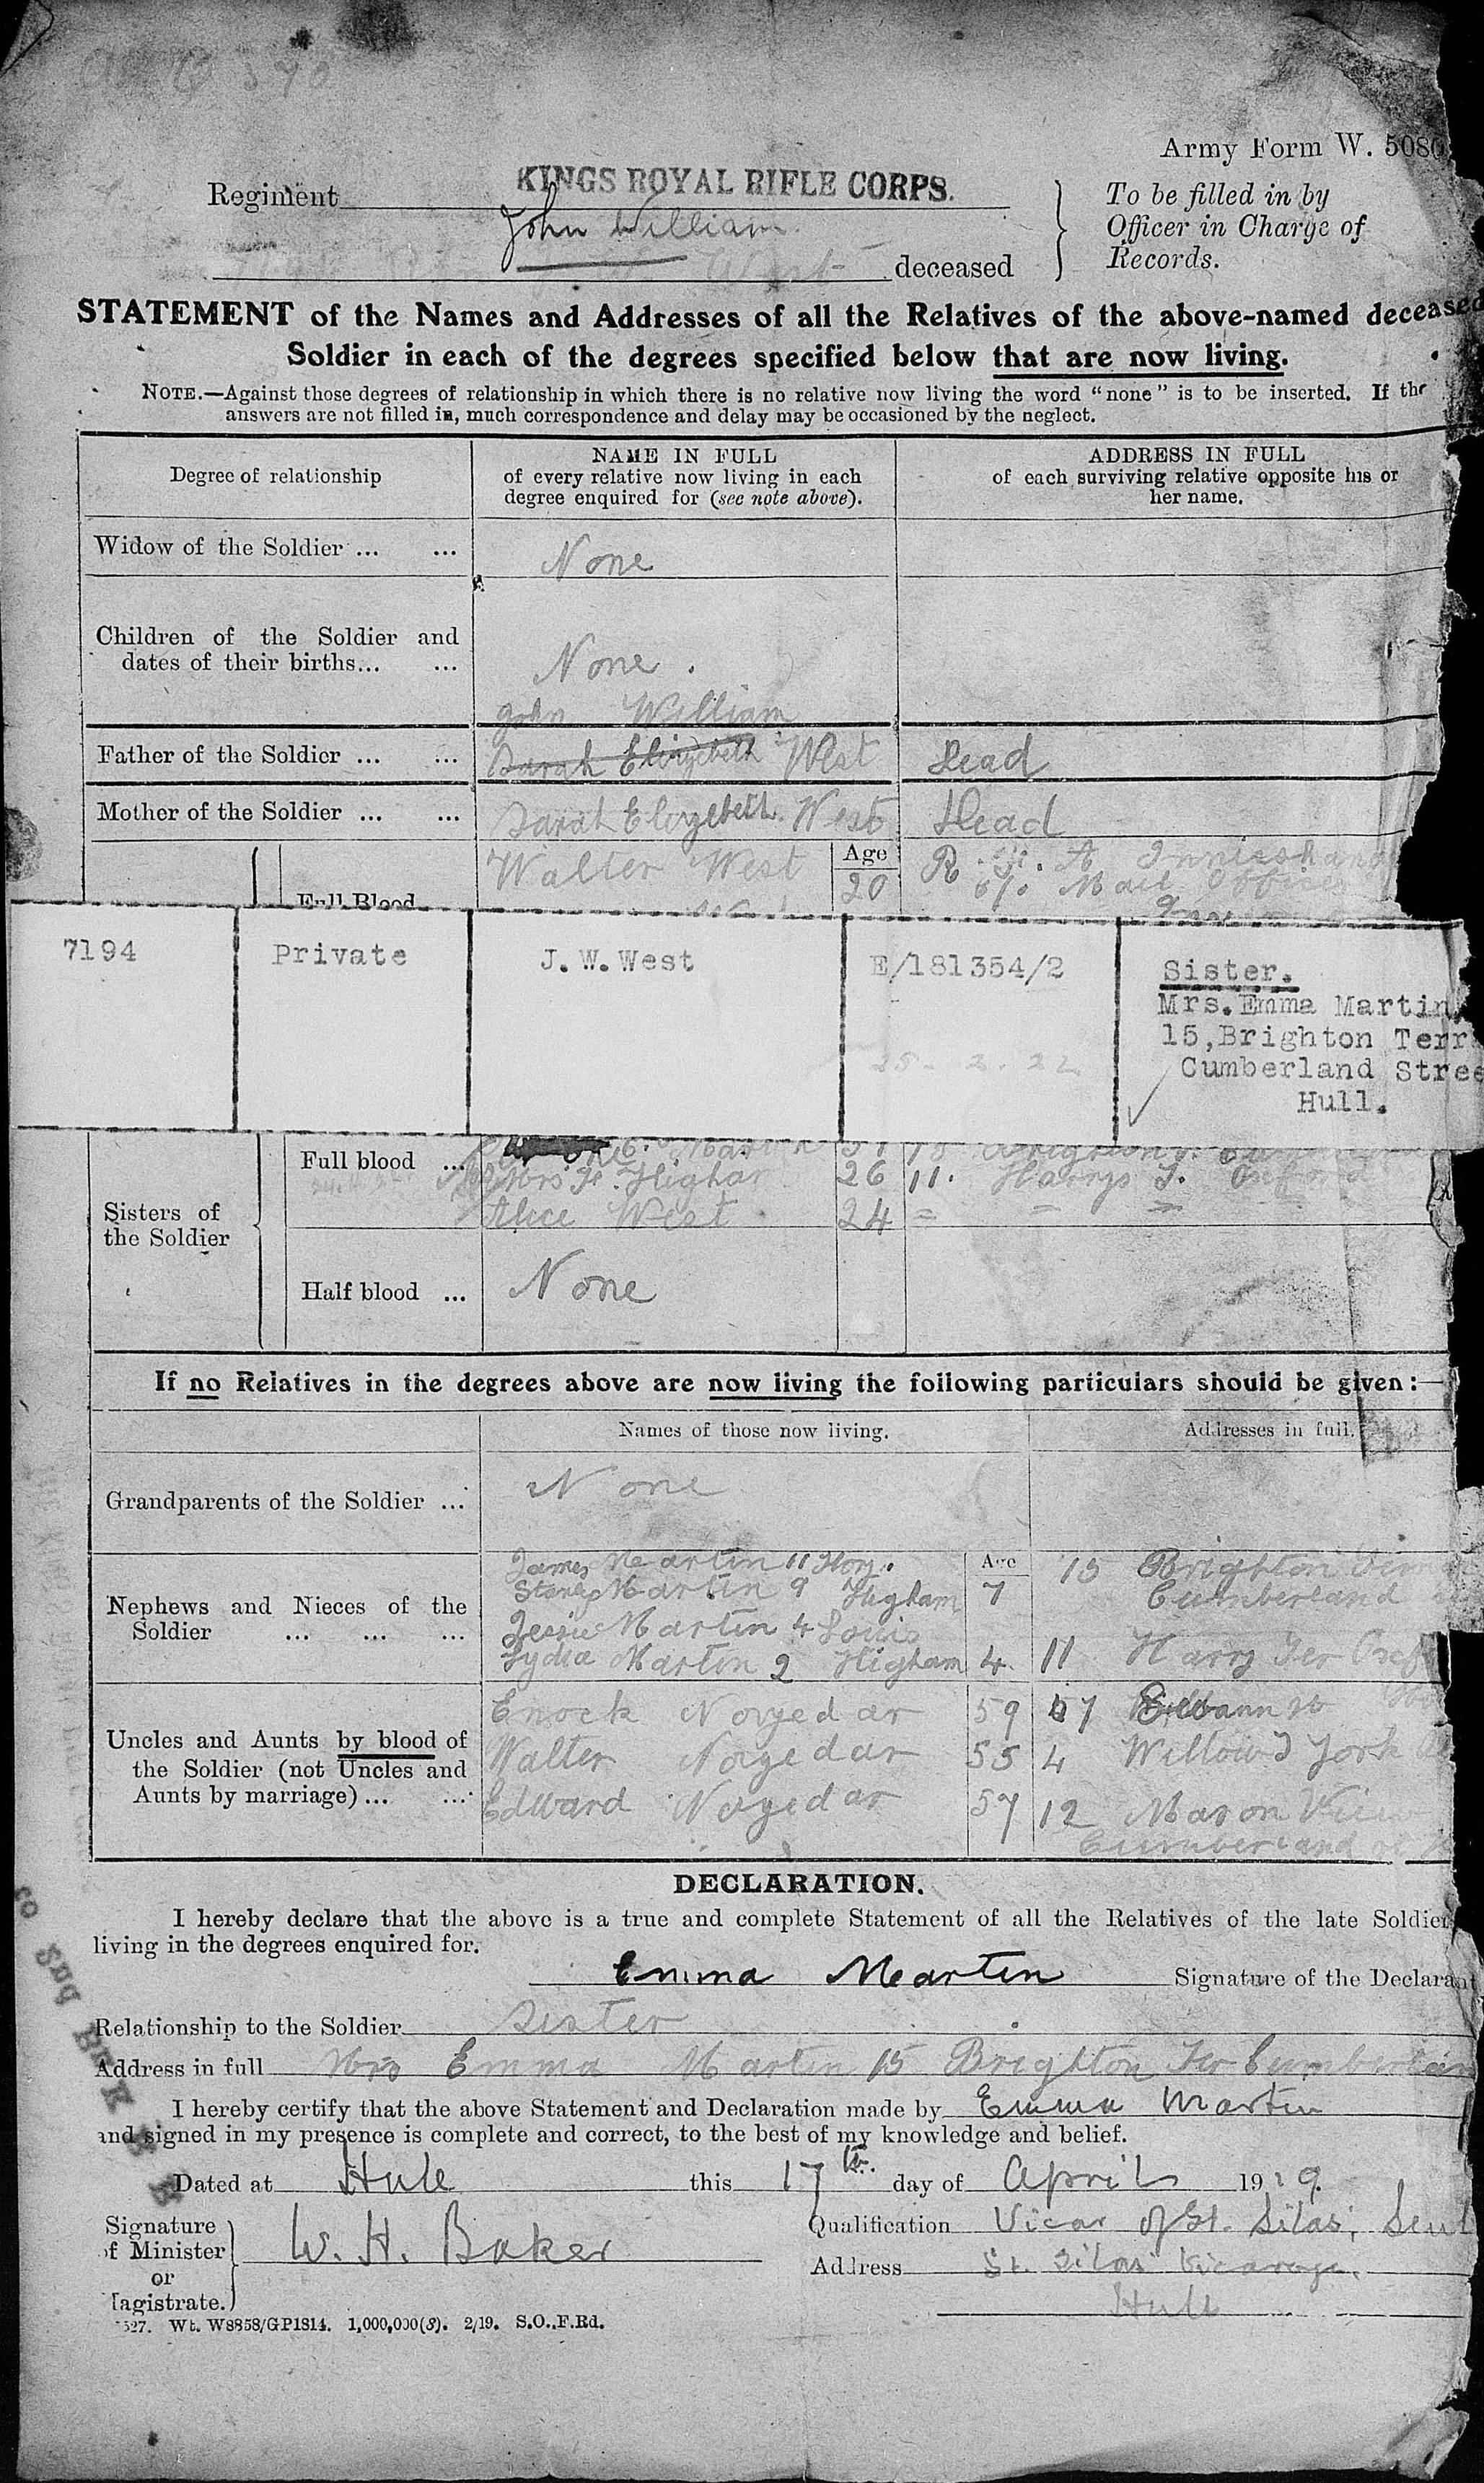 Army Form W. 5080
Regiment KINGS ROYAL RIFLE CORPS.
To be filled in by
Officer in Charge of
Records.
John William
West deceased
STATEMENT of the Names and Addresses of all the Relatives of the above-named deceased
Soldier in each of the degrees specified below that are now living.
NOTE.—Against those degrees of relationship in which there is no relative now living the word "none" is to be inserted. If the
answers are not filled in, much correspondence and delay may be occasioned by the neglect.
Degree of relationship
NAME IN FULL
of every relative now living in each
degree enquired for (see note above).
ADDRESS IN FULL
of each surviving relative opposite his or
her name.
Widow of the Soldier ... ... None
Children of the Soldier and
dates of their births... ... None.
John William
Father of the Soldier ... ... Sarah Elizebeth West Dead
Mother of the Soldier ... ... Sarah Elizebeth West Dead
Walter West Age 20
Full Blood
7194 Private J. W. West E/181354/2
25-2.22
Sister.
Mrs. Emma Martin
15, Brighton Terr
Cumberland Stree
Hull.
Sisters of
the Soldier
Full blood ...
Mrs F. Higham 26 11. Harrys T. Oxford
Alice West 24 = = =
Half blood ... None
If no Relatives in the degrees above are now living the following particulars should be given:—
Names of those now living. Addresses in full.
Grandparents of the Soldier ... None
Nephews and Nieces of the
Soldier ... ... ...
Age
James Martin 11
Martin 9 Higham 7
Jessie Martin 4 Louis
Lydia Martin 2 Higham 4.
15 Brighton
Cumberland
11 Harry Ter
Uncles and Aunts by blood of
the Soldier (not Uncles and
Aunts by marriage)... ...
Enock 59
Walter 55 4 Willow T York
Edward 57 12 View
Cumberland
DECLARATION.
I hereby declare that the above is a true and complete Statement of all the Relatives of the late Soldier
living in the degrees enquired for.
Emma Martin Signature of the Declarant
Relationship to the Soldier Sister
Address in full Mrs Emma Martin 15 Brighton Ter Cumberlan
I hereby certify that the above Statement and Declaration made by Emma Martin
and signed in my presence is complete and correct, to the best of my knowledge and belief.
Dated at Hull this 17th. day of April 1919.
Signature
of Minister
or
Magistrate.
W. H. Baker
Qualification Vicar of St. Silas,
Address St. Silas Vicarage,
Hull
527. Wt. W8858/GP1814. 1,000,000(8). 2/19. S.O.,F.Rd.